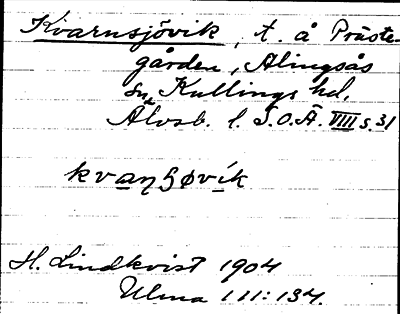 Kvarnsjövik, t. å Präste-
gården, Alingsås
sn, Kullings hd,
Älvsb. l. S.O.Ä. VIII s. 31
kvaŋʃøvík
H. Lindkvist 1904
Ulma 111:134.